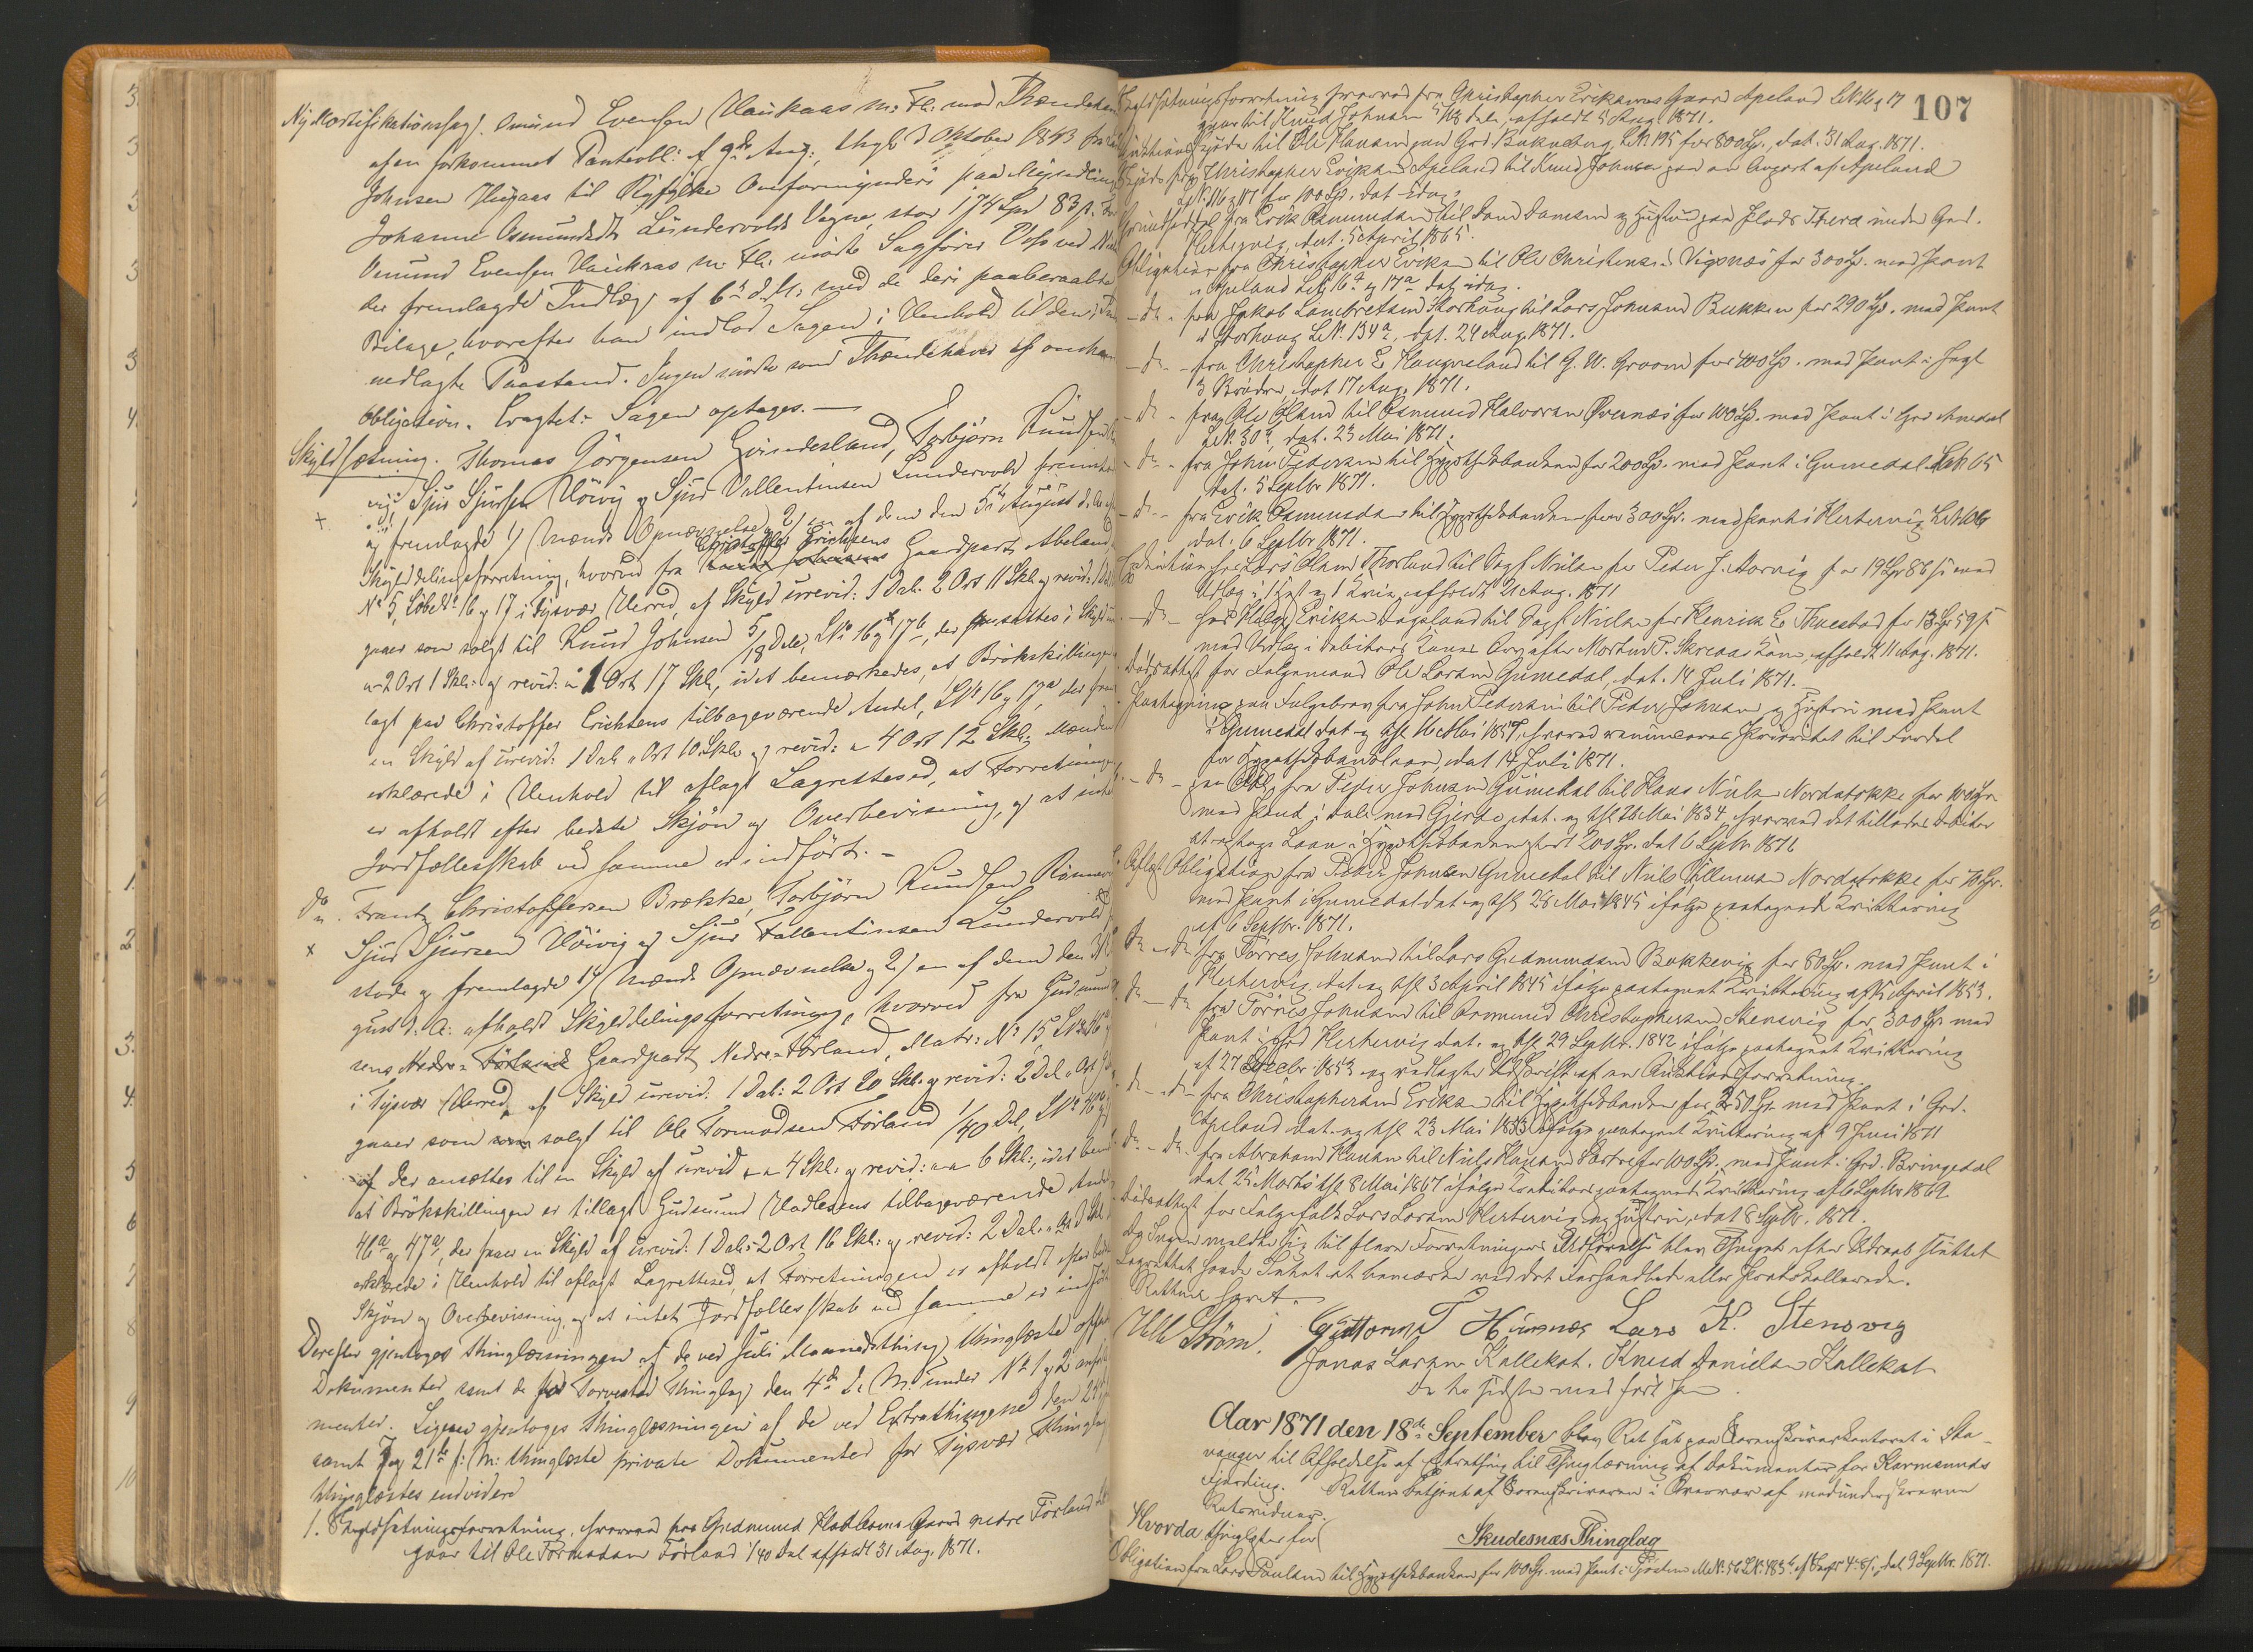 Ny Mortifikationssag. Omund Evensen Haukaas m: Fl: mod Ihændehav
af en forkommet Panteobl: af 9de Aug:, thgl: 3 Oktober 1843 fra
Johnsen Haugaas til Ryfylke Overformynderi paa Myndling
Johanne Osmundsdtr Lundervolds Vegne, stor 174 Spd 83 s. For
Omund Evensen Haukaas m: Fl: mødte Sagfører Voss ved
der fremlagde Indlæg af 6te d. M. med de deri paaberaabte
Bilage, hvorefter han indlod Sagen i Henhold til den i
nedlagte Paastand. Ingen mødte som Ihændehaver af omhan
Obligation. Eragtet: Sagen optages. —
Skyldsætning. Thomas Jørgensen Grindesland, Torbjørn Knudsen
vig, Sjur Sjursen Høivig og Sjur Vallentinsen Lundervold fremstode
+ og fremlagde 1) Mænds Opnævnelse og 2) en af dem den 5te August d. A.
Skylddelingsforretning, hvorved fra Christoffer Erichsens Gaardpart Abeland,
No 5, Løbe No 16 og 17 i Tysvær Herred, af Skyld urevid: 1 Dal: 2 Ort 11 Skl og revid:
gaaer som solgt til Knud Johnsen 5/18 Dele, L No 16 og 17b, der ansættes i Skyld
" 2 Ort 1 Skl: og revid: " 1 Ort 17 Skl, idet bemærkedes, at Brøkskillingen
lagt paa Christoffer Erichsens tilbageværende Andel, L No 16 og 17a, der faar
en Skyld af urevid: 1 Dal " Ort 10 Skl: og revid: " 4 Ort 12 Skl; Mændene
erklærede i Henhold til aflagt Lagrettesed, at Forretningen
er afholdt efter bedste Skjøn og Overbevisning, og at intet
Jordfællesskab ved samme er indført. —
Do. Frantz Christoffersen Brække, Torbjørn Knudsen
+ Sjur Sjursen Høivig og Sjur Vallentinsen Lundervold
stode og fremlagde 1) Mænds Opnævnelse og 2) en af dem den 31
gust d. A: afholdt Skylddelingsforretning, hvorved fra Gudmund
sens Nedre-Førland Gaardpart Nedre-Førland, Matr: No 15, L No 46
i Tysvær Herred, af Skyld urevid: 1 Dal: 2 Ort 20 Skl: og revid: 2 Dal " Ort
gaaer som solgt til Ole Tormodsen Førland 1/40 Del, L No 46
der ansættes til en Skyld af urevid " " 4 Skl: og revid: " " 6 Skl:, idet bem
at Brøkskillingen er tillagt Gudmund Hadlesens tilbageværende Andel
46a og 47a, der faaer en Skyld af urevid: 1 Dal: 2 Ort 16 Skl: og revid: 2 Dal. " Ort
erklærede i Henhold til aflagt Lagrettesed, at Forretningen er afholdt efter bedste
Skjøn og Overbevisning, og at intet Jordfællesskab ved samme er indført
Derefter gjentoges thinglæsningen af de ved Juli Maanedsthing thinglæste
Dokumenter samt de for Torvestad Thinglag den 4de d. M. under No 1 og 2 anførte
menter. Ligesaa gjentoges thinglæsningen af de ved Extrathingene den 24
samt 7 og 21de f: M: thinglæste private Dokumenter for Tysvær Thinglag
thinglæstes endvidere
1. Skyldsætningsforretning, hvorved fra Gudmund Hadlesens Gaard nedre Førland
gaar til Ole Tormodsen Førland 1/40 Del afholdt 31 Aug. 1871.
107
Skyldsætningsforretning hvorved fra Christopher Eriksens Gaard Apeland LNo 16 og 17
gaar til Knud Johnsen 5/18 Dele, afholdt 5 Aug. 1871.
Auktionsskjøde til Ole Hansen paa Grd Bukneberg, LNo 195 for 800 Spd., dat. 31 Aug. 1871.
Skjøde fra Christopher Eriksen Apeland til Knud Johnsen paa en Anpart af Apeland
LNo 16 og 17 for 100 Spd. dat idag.
Grundseddel fra Erik Osmundsen til Dan Danesen og Hustru paa Plads Therd under Grd.
Hertervig, dat. 5 April 1865.
Obligation fra Christopher Eriksen til Ole Christensen Vigsnæs for 300 Spd. med Pant
i Apeland LNo 16a og 17a dat idag.
— do - fra Jakob Lambretsen Storhaug til Lars Johnsen Bukken for 290 Spd. med Pant
i Storhaug LNo 134a, dat. 24 Aug 1871.
— do - fra Christopher E Haugvaland til G. W. Groom for 400 Spd. med Pant i Jagt
3 Brødre, dat 17 Aug. 1871.
— do - fra Ole Olsen til Osmund Halvorsen Øvernæs for 100 Spd. med Pant i Grd Amdal
LNo 30a, dat. 23 Mai 1871.
— do - fra John Pedersen til Hypothekbanken for 200 Spd. med Pant i Gumedal LNo 65
dat. 5 Septbr 1871.
— do - fra Erik Osmundsen til Hypothekbanken for 300 Spd. med Pant i Hertervig
dat. 6 Septbr 1871.
Exekution hos Lars Olsen Thorland til Sagf. Nielsen for Peder J. Aarvig for 19 Spd 86 s med
Udlæg i 1 Hest og 1 Kvie, afholdt 21 Aug. 1871
— do - hos Helge Eriksen Dagsland til Sagf. Nielsen for Henrik E. Thuestad for 13 Spd 59 s
med Udlæg i Debitors Kones Arv efter Morten P. Skreaas Kone, afholdt 11 Aug. 1871.
Dødsattest for Folgemand Ole Larsen Gumedal, dat. 14 Juli 1871.
Paategning paa Folgebrev fra John Pedersen til Peder Johnsen og Hustru med Pant
i Gumedal dat og thl 16 Mai 1857, hvorved renunceres Prioritet til Fordel
for Hypothekbanklaan, dat 14 Juli 1871.
— do - paa Obl. fra Peder Johnsen Gumedal til Hans Nielsen Nordstokke for 100 Spd
med Pant i Dale med Gjerde, dat. og thl 26 Mai 1834, hvorved det tillades Debitor
at optage Laan i Hypothekbanken stort 200 Spd. dat 6 Septbr 1871
Aflyst Obligation fra Peder Johnsen Gumedal til Niels Villumsen Nordstokke for 70 Spd.
med Pant i Gumedal dat og thl 26 Mai 1845 ifølge paategnede Kvittering
af 6 Septbr. 1871.
do - do fra Tørres Johnsen til Lars Gudmundsen Bokkevig for 80 Spd. med Pant i
Hertervig dat. og thl 3 April 1845 ifølge paategnet Kvittering af 15 April 1853.
do - do fra Tørres Johnsen til Osmund Christophersen Stensvig for 300 Spd med
Pant i Grd Hertervig dat. og thl 29 Septbr. 1842 ifølge paategnet Kvittering
af 27 Decbr 1853 og vedlagte Udskrift af en Auktionsforretning.
do - do - fra Christophersen Eriksen til Hypothekbanken for 250 Spd. med Pant i Grd.
Apeland dat. og thl 23 Mai 1853 ifølge paategnet Kvittering af 9 Juni 1871
do - do - fra Abraham Hansen til Niels Hansen Sørtre for 100 Spd. med Pant i Grd. Bringedal
dat 25 Marts thl 8 Mai 1867 ifølge Creditors paategnede Kvittering af 6 Septbr 1869
Dødsattest for Folgefolk Lars Larsen Hertervig og Hustru, dat 8 Septbr. 1871.
Da Ingen meldte sig til flere Forretningers Udførelse blev Thinget efter Udraab sluttet
Lagrettet havde Intet at bemærke ved det Forhandlede eller Protokollerede.
Retten hævet.
Helle Strøm. Guttorm T Hinnæs Lars K. Stensvig
Jonas Larsen Kallekot. Knud Danielsen Kallekot
De to sidste med ført Pen
Aar 1871 den 18de September blev Ret sat paa Sorenskriverkontoret i Sta-
vanger til Afholdelse af Extrathing til Thinglæsning af Dokumenter for Karmsunds
Fjerding. Retten betjent af Sorenskriveren i Overvær af medunderskrevne
Retsvidner.
Hvorda thinglæstes for
Skudesnæs Thinglag
Obligation fra Lars Paulsen til Hypothekbanken for 100 Spd. med Pant i MNo 56 LNo 183b, dat 9 Septbr. 1871.